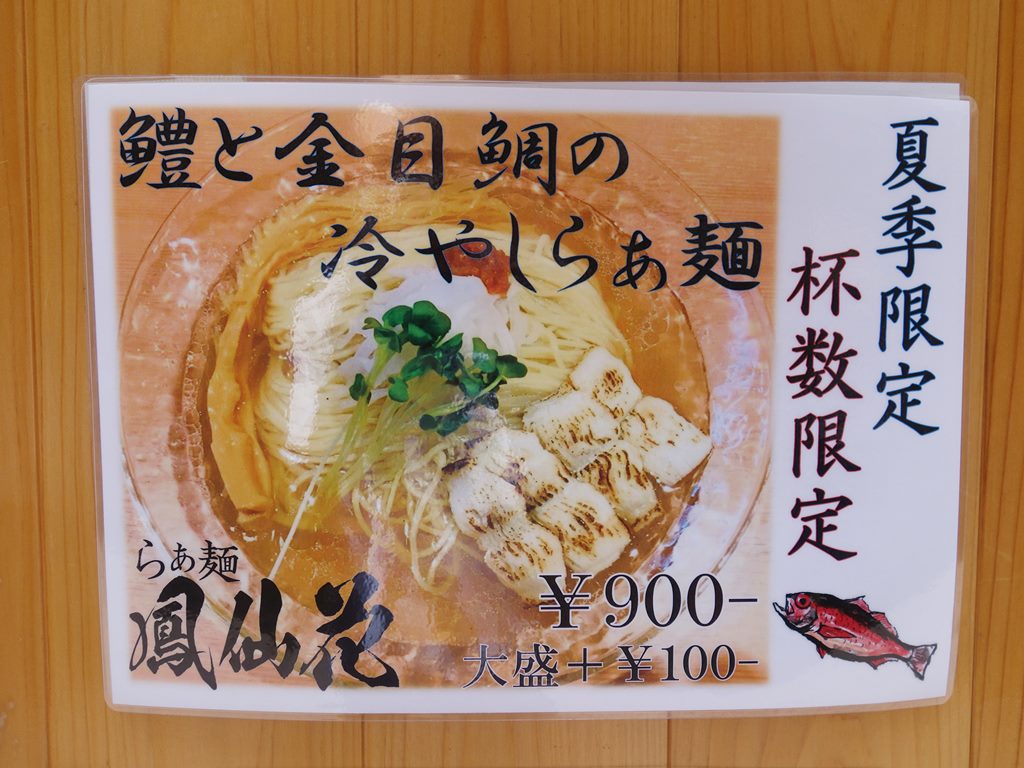 鱧と金目鯛の
冷やしらぁ麺
夏季限定
杯数限定
らぁ麺
鳳仙花
¥900-
大盛+¥100-